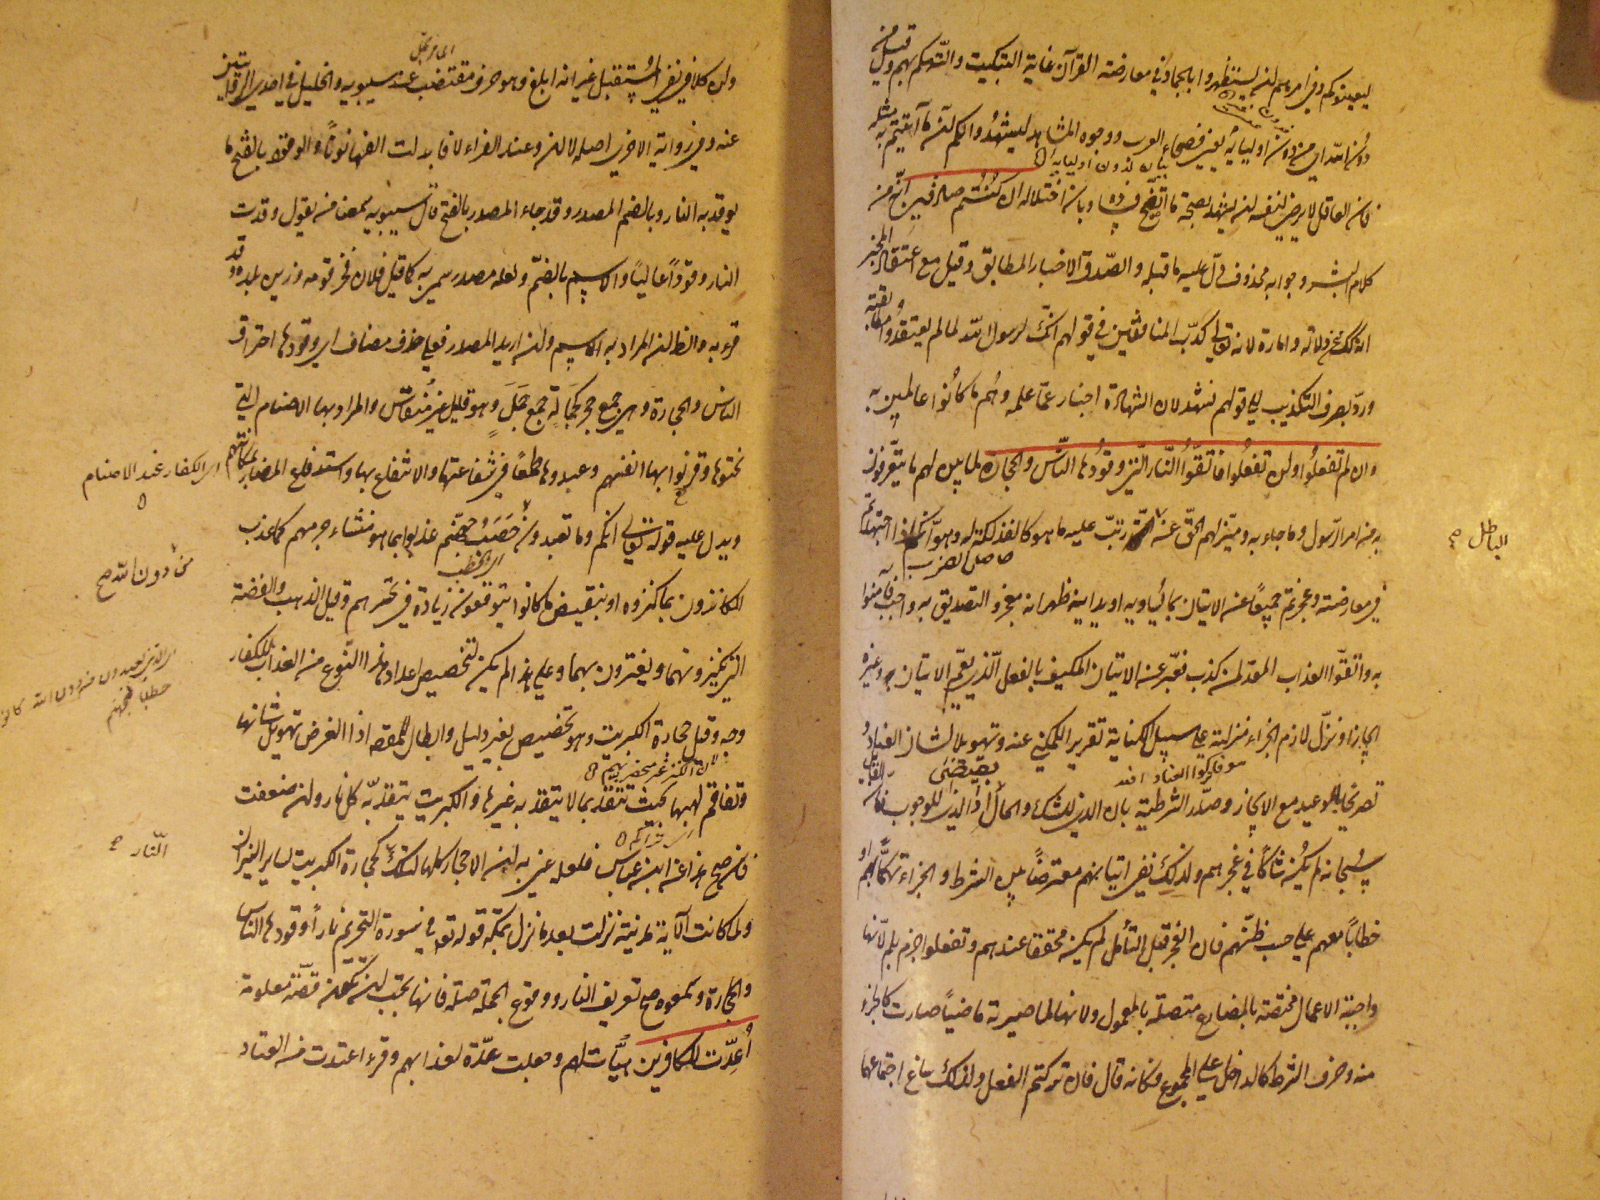 ليعينوكم وفي امرهم لنه يستظهروا بالجماد في معارضة القرآن غاية التبكيت والتهكم بهم وقيل من
دون الله اي من دون اوليائه يعني فصحاء العرب ووجوه المشاهد ليشهدوا لكم لنه ما آتيتم به مثله
فان العاقل لا يرضي لنفسه لنه يشهد بصحة ما اتضح فساده وبان اختلاله ان كنتم صادقين انه من
كلام البشر وجوابه محذوف دل عليه ما قبله والصدق الاخبار المطابق وقيل مع اعتقاد المخبر
انه كذلك عن دلالة وامارة لانه تعالي كذب المنافقين في قولهم انك لرسول الله لما لم يعتقدوا مطابقته
ورد بصرف التكذيب الي قولهم نشهد لان الشهادة اخبار عما علمه وهم ما كانوا عالمين به
وان لم تفعلوا ولن تفعلوا فاتقوا النار التي وقودها الناس والحجارة لما بين لهم ما يتعرفون
به منه امر الرسول وما جاء به وميز لهم الحق عن رتب عليه ما هو كالفذلكة له وهو انكم اذا اجتهدتم
الباطل صح
في معارضته وعجزتم جميعا عن الاتيان بما يساويه او يدانيه ظهر انه معجز والتصديق به واجب فآمنوا
به واتقوا العذاب المعد لمن كذب فعبر عن الاتيان المكيف بالفعل الذي يعم الاتيان وغيره
ايجازا ونزل لازم الجزاء منزلته علي سبيل الكناية تقريرا للمكني عنه وتهويلا لشان العناد و
تصريحا بالوعيد مع الايجاز وصدر الشرطية بان الذي للشك والحال اذا الذي للوجوب فان
سبحانه لم يكن شاكا في عجزهم ولذلك نفي اتيانهم معترضا بين الشرط والجزاء تهكما بهم او
خطابا معهم علي حسب ظنهم فان العجز قبل التأمل لم يكن محققا عندهم وتفعلوا جزم بلم لانها
واجبة الاعمال مختصة بالمضارع متصلة بالمعمول ولانها لما صيرته ماضيا صارت كالجزء
منه وحرف الشرط كالداخل علي المجموع فكانه قال فان تركتم الفعل ولذلك ساغ اجتماعهما
ولن كلا في نفي المستقبل غير انه ابلغ وهو حرف مقتضب عند سيبويه والخليل في احدي الروايتين
عنه وفي روايته الاخري اصله لا ان وعند الفراء لا فابدلت الفها نونا والوقود بالفتح ما
يوقد به النار وبالضم المصدر وقد جاء المصدر بالفتح قال سيبويه سمعنا من يقول وقدت
النار وقودا عاليا والاسم بالضم ولعله مصدر سمي به كما قيل فلان فخر قومه وزين بلده وقد
قرء به والظاهر المراد به الاسم ولن اريد المصدر فعلي حذف مضاف اي وقودها احتراق
الناس والحجارة وهي جمع حجر كجمالة جمع جمل وهو قليل غير منقاس والمراد بها الاصنام التي
نحتوها وقرنوا بها انفسهم وعبدوها طمعا في شفاعتها والانتفاع بها واستدفاع المضار بمكانتهم
اي الكفار عند الاصنام
ويدل عليه قوله تعالي انكم وما تعبدون حصب جهنم عذبوا بما هو منشاء جرمهم كما عذب
من دون الله صح
الكانزون بما كنزوه او بنقيض ما كانوا يتوقعون زيادة في تحسرهم وقيل الذهب والفضة
التي يكنزونهما ويغترون بهما وعلي هذا لم يكن لتخصيص اعداد هذا النوع من العذاب بالكفار
وجه وقيل حجارة الكبريت وهو تخصيص بغير دليل وابطال للمقصود اذ الغرض تهويل شانها
وتفاقم لهبها بحيث تتقد بما لا يتقد به غيرها والكبريت يتقد به كل نار ولن ضعفت
فان صح هذا عن ابن عباس فلعله عني به لن الاحجار كلها لتلك كحجارة الكبريت لساير النيران
النار صح
ولما كانت الآية مدنية نزلت بعد ما نزل بمكة قوله تعالي في سورة التحريم نارا وقودها الناس
والحجارة وسمعوه صح تعريف النار ووقوع الجملة صلة فانها يجب لن تكون قصة معلومة
اعدت للكافرين هيئت لهم وجعلت عدة لعذابهم وقرء اعتدت من العتاد